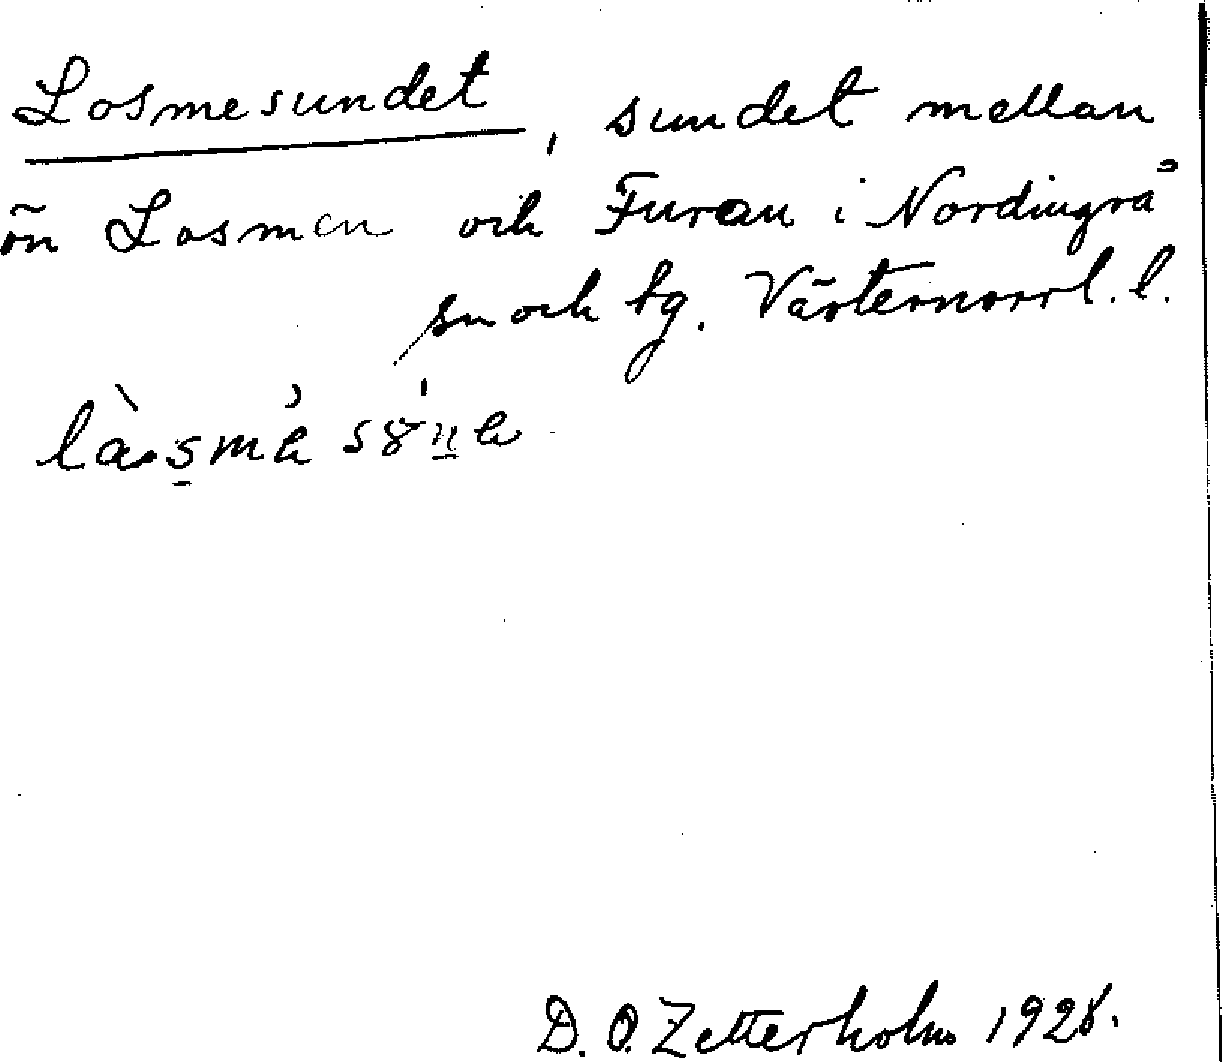 Losmesundet, sundet mellan
ön Losmen och Furan i Nordingrå
sn och tg. Västernorrl. l.
D. O. Zetterholm 1928.